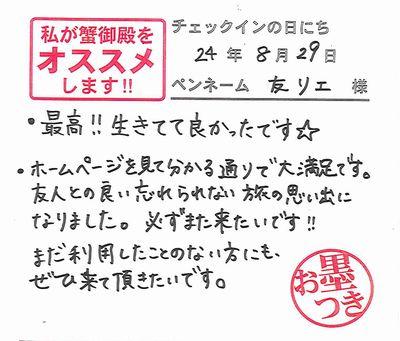 私が蟹御殿を
オススメ
します!!
チェックインの日にち
24 年 8 月 29 日
ペンネーム 友リエ 様
・最高!! 生きてて良かったです☆
・ホームページを見て分かる通りで大満足です。
友人との良い忘れられない旅の思い出に
なりました。必ずまた来たいです!!
まだ利用したことのない方にも、
ぜひ来て頂きたいです。
お墨
つき